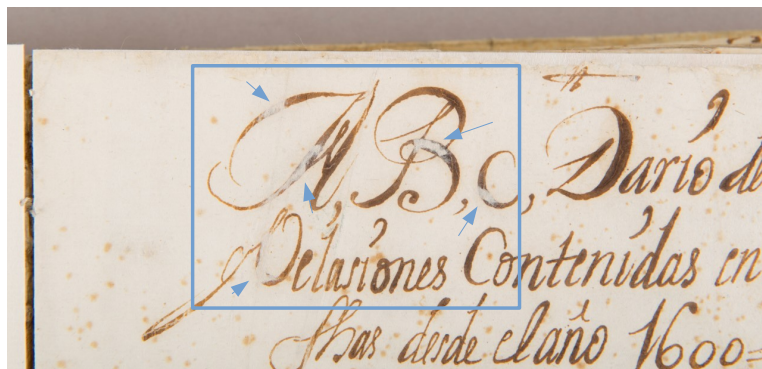 A, B, C, Dario de
Relasiones Contenidas en
desde el año 1600=